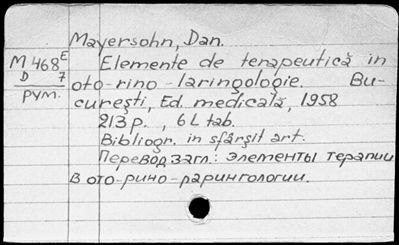 Mayersohn, Dan.
M 468 E
D 7
РУМ.
Elemente de terapeutică in
oto-rino-laringologie. Bu-
curești, Ed. medicală, 1958
213 p. , 6 L tab.
Bibliogr. in sfârșit art.
Перевод загл.: Элементы терапии
в ото-рино-ларингологии.